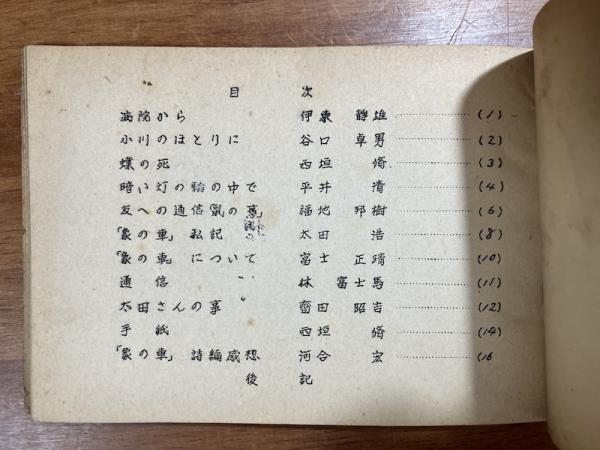 目次
病院から 伊東静雄 (1)
小川のほとりに 谷口卓男 (2)
蝶の死 西垣脩 (3)
暗い灯の輪の中で 平井清 (4)
友への通信 福地邦樹 (6)
「象の車」私記 太田浩 (8)
「象の車」について 富士正晴 (10)
通信 林富士馬 (11)
太田さんの事 齋田昭吉 (12)
手紙 西垣脩 (14)
「象の車」詩編感想 河合宏 (16
後記